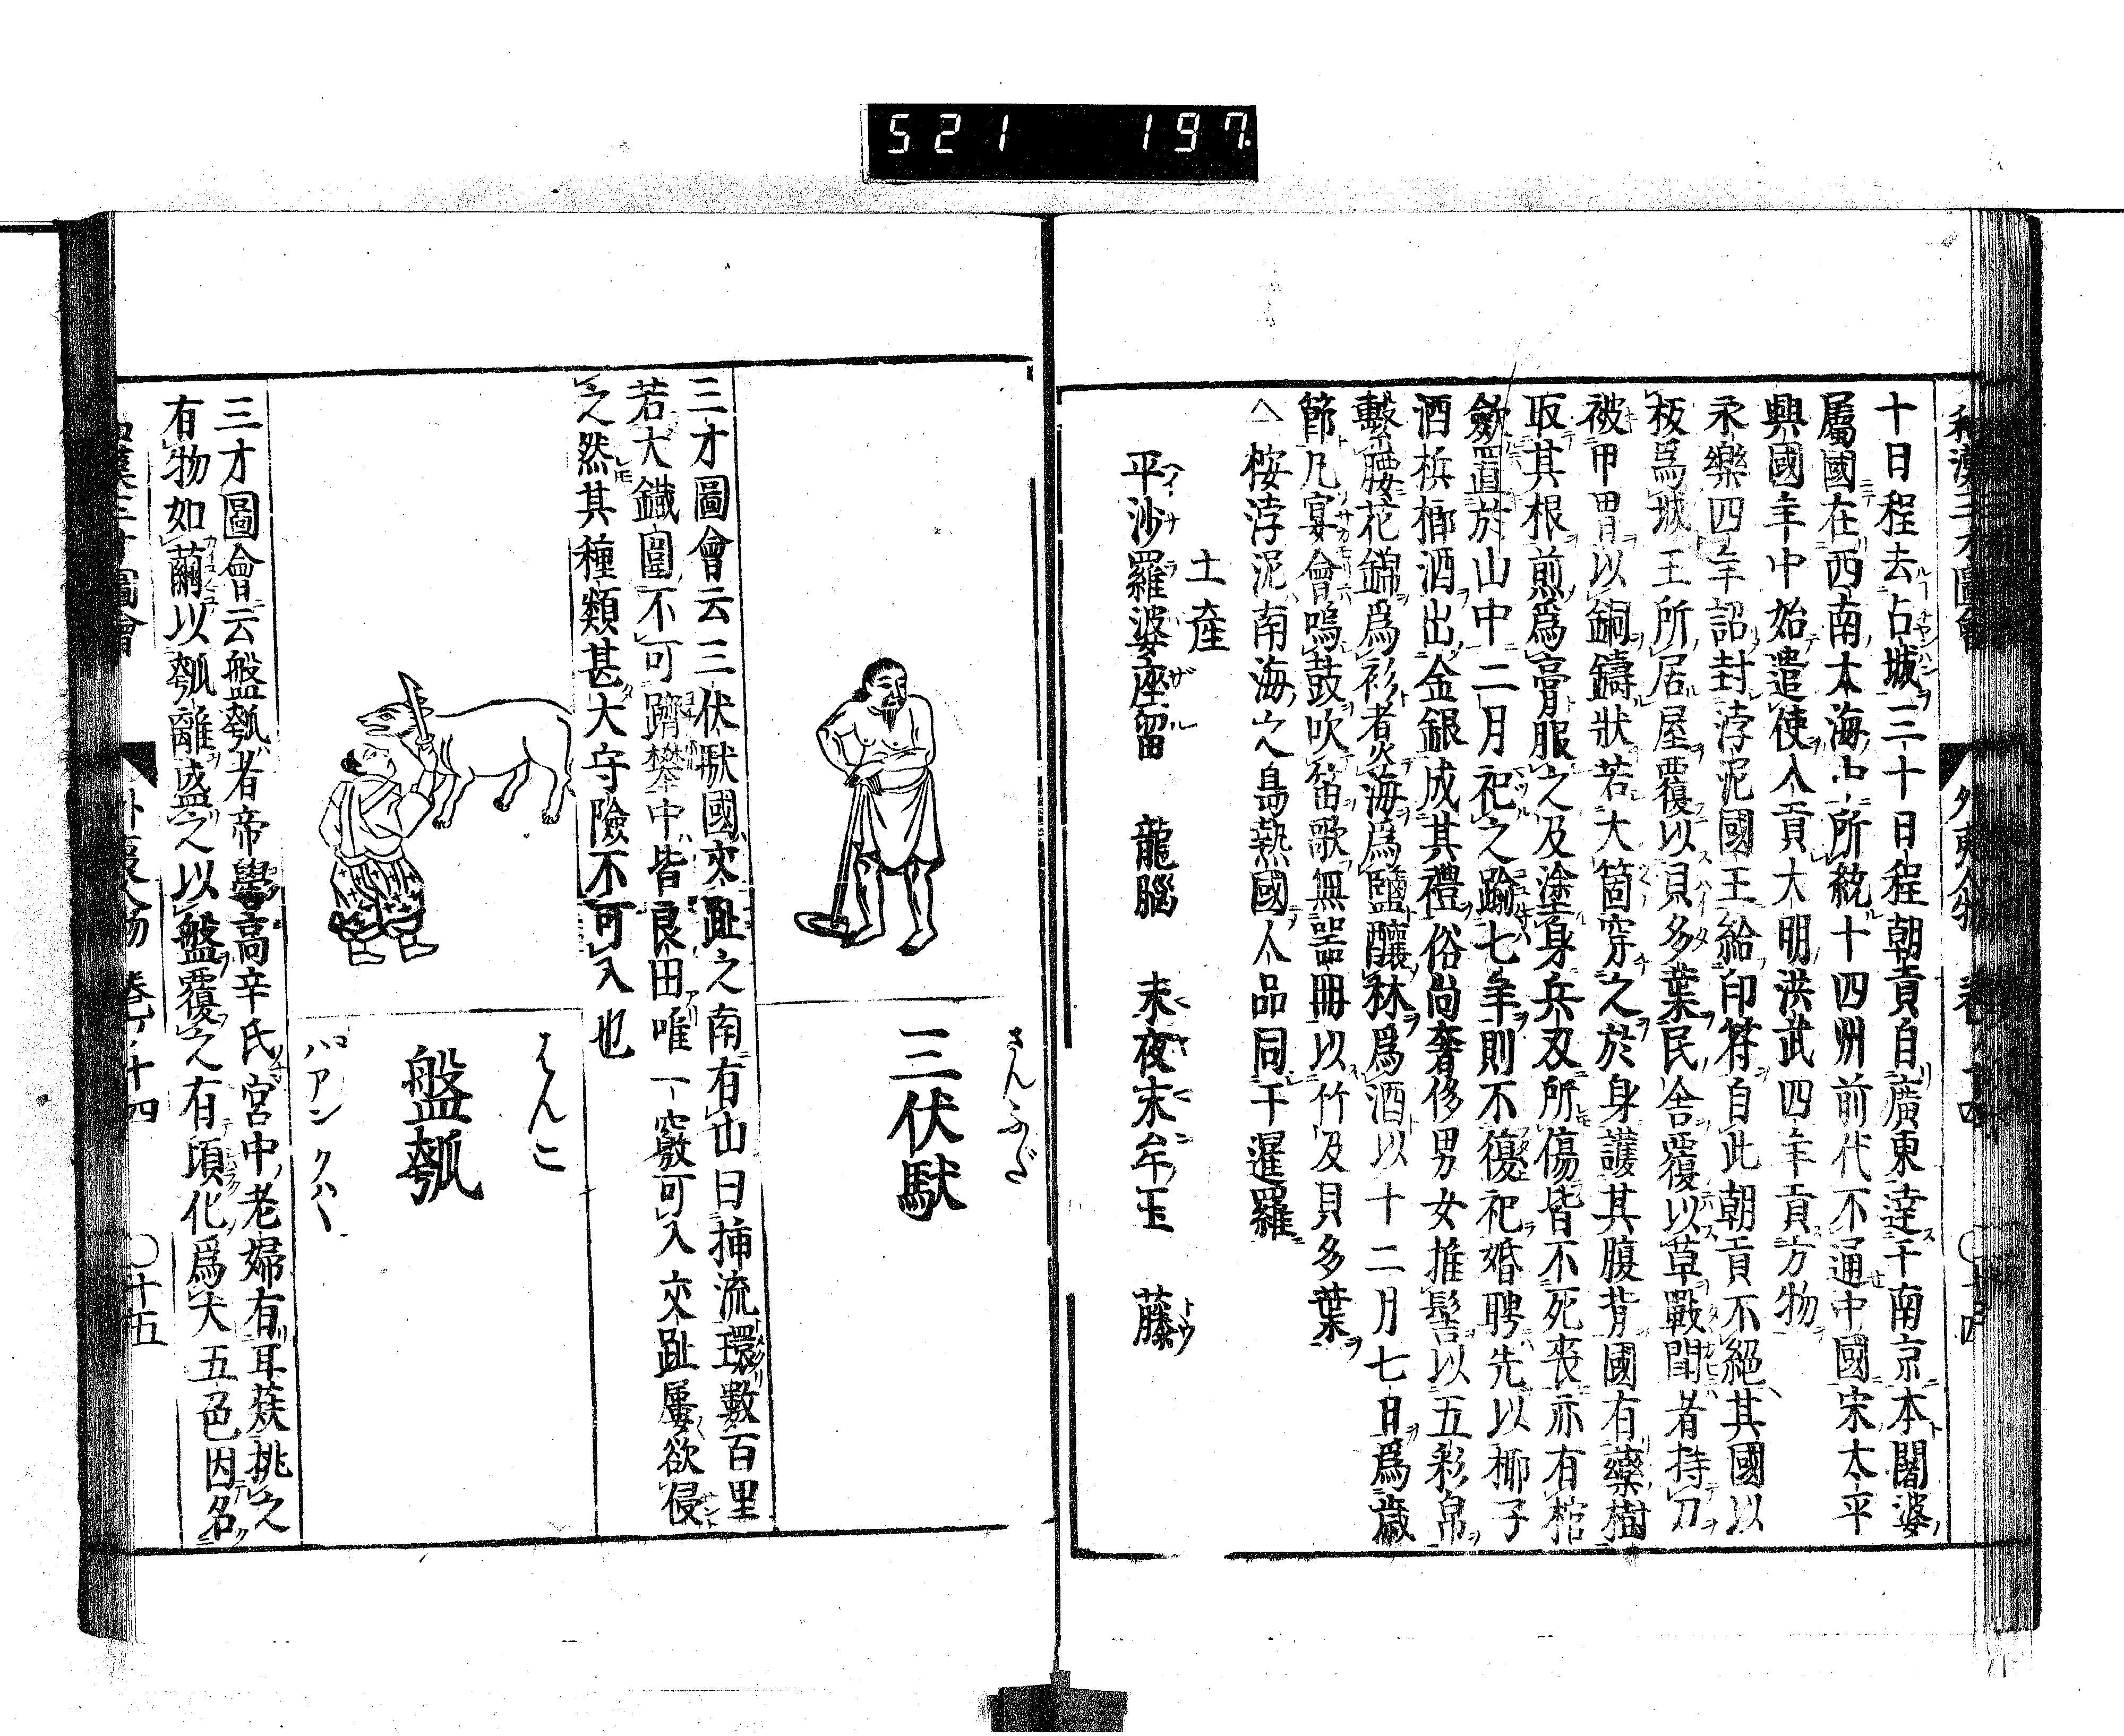 521 197
和漢三才圖會 外夷人物 卷ノ十四 〇十四
十日程去占城三十日程朝貢自廣東達于南京本闍婆
屬國在西南大海中所統十四州前代不通中國宋太平
興國年中始遣使入貢大明洪武四年貢方物
永樂四年詔封浡泥國王給印符自此朝貢不絕其國以
板爲城王所居屋覆以貝多葉民舍覆以草戰鬪者持刀
被甲冑以銅鑄狀若大筒穿之於身護其腹背國有藥樹
取其根煎爲膏服之及塗身兵刃所傷皆不死喪亦有棺
斂置於山中二月祀之踰七年則不復祀婚聘先以椰子
酒梹榔酒出金銀成其禮俗尚奢侈男女推髻以五彩帛
繫腰花錦爲衫者炎海爲鹽釀秫爲酒以十二月七日爲歲
節凡宴會鳴鼓吹笛歌無器皿以竹及貝多葉
△桉浡泥南海之島熱國人品同于暹羅
土產
平沙羅婆座留 龍腦 末夜末牟玉 藤
さんふだ
三伏馱
三才圖會云三伏馱國交趾之南有山曰挿流環數百里
若大鐵圍不可躋攀中皆良田唯一竅可入交趾屢欲侵
之然其種類甚大守險不可入也
はんこ
盤瓠
三才圖會云盤瓠者帝嚳高辛氏宮中老婦有耳蔟挑之
有物如繭以瓠離盛之以盤覆之有頃化爲犬五色因名
和漢三才圖會 外夷人物 卷ノ十四 〇十五